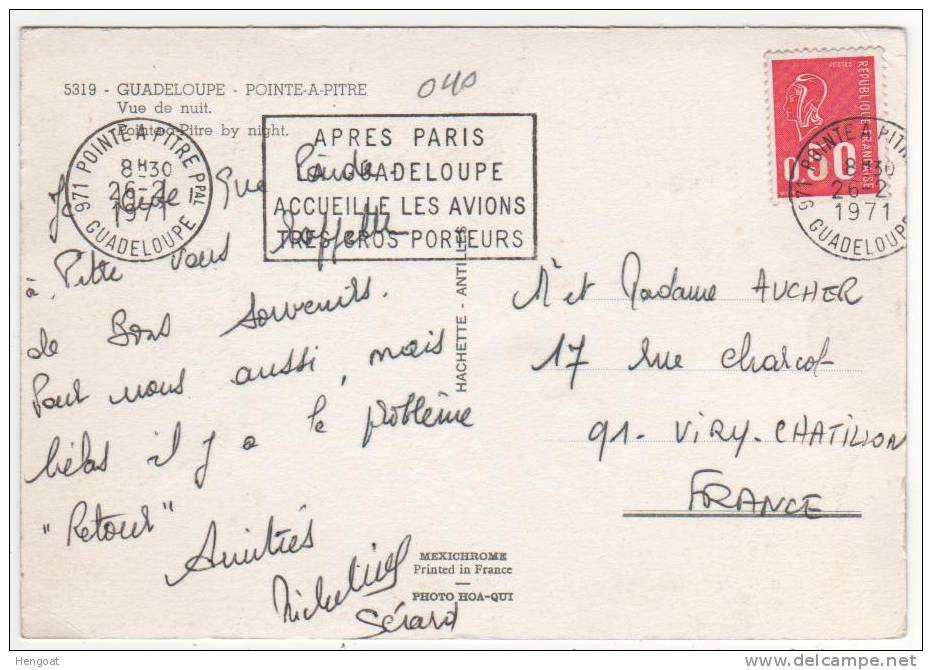 5319 - GUADELOUPE - POINTE-A-PITRE
Vue de nuit.
Pointe-à-Pitre by night.
040
971 POINTE A PITRE PPAL
8H30
26-2
1971
GUADELOUPE
APRES PARIS
LA GUADELOUPE
ACCUEILLE LES AVIONS
TRES GROS PORTEURS
REPUBLIQUE FRANCAISE
0.50
971 POINTE A PITRE
8H30
26-2
1971
GUADELOUPE
Je que Pointe-
à Pitre vous rappelle
de Bons souvenirs.
Pour nous aussi, mais
hélas il y a le problème
"Retour"
Amitiés
Micheline
Gérard
HACHETTE - ANTILLES
Mr et Madame AUCHER
17 rue Charcot
91- VIRY-CHATILLON
FRANCE
MEXICHROME
Printed in France
PHOTO HOA-QUI
Hengoat
delcampe.net